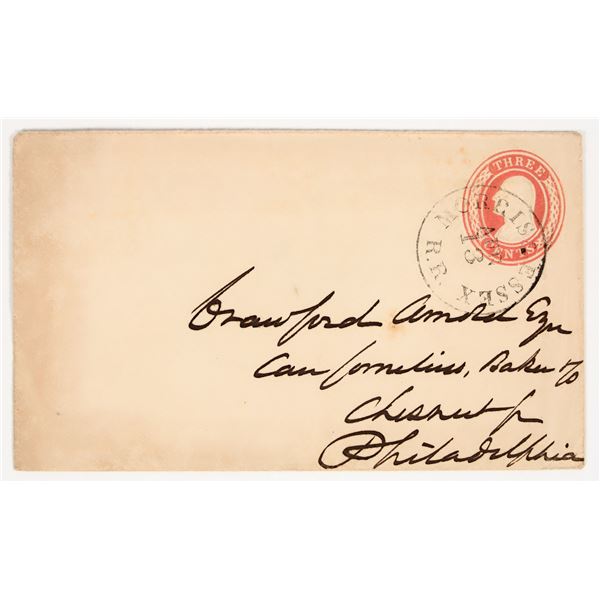 THREE
CENTS
MORRIS & ESSEX R.R.
APR
13
Crawford Arnold Esqr
Care Cornelius, Baker & Co
Chesnut St
Philadelphia